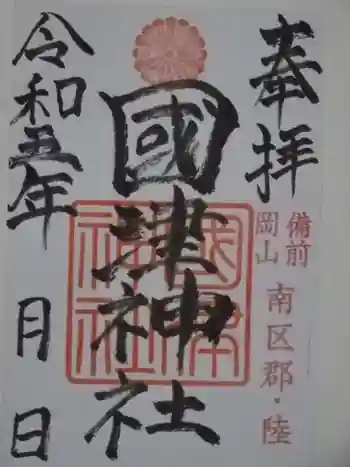 奉拝
備前
岡山
南区郡・陸
國津神社
令和五年 月 日